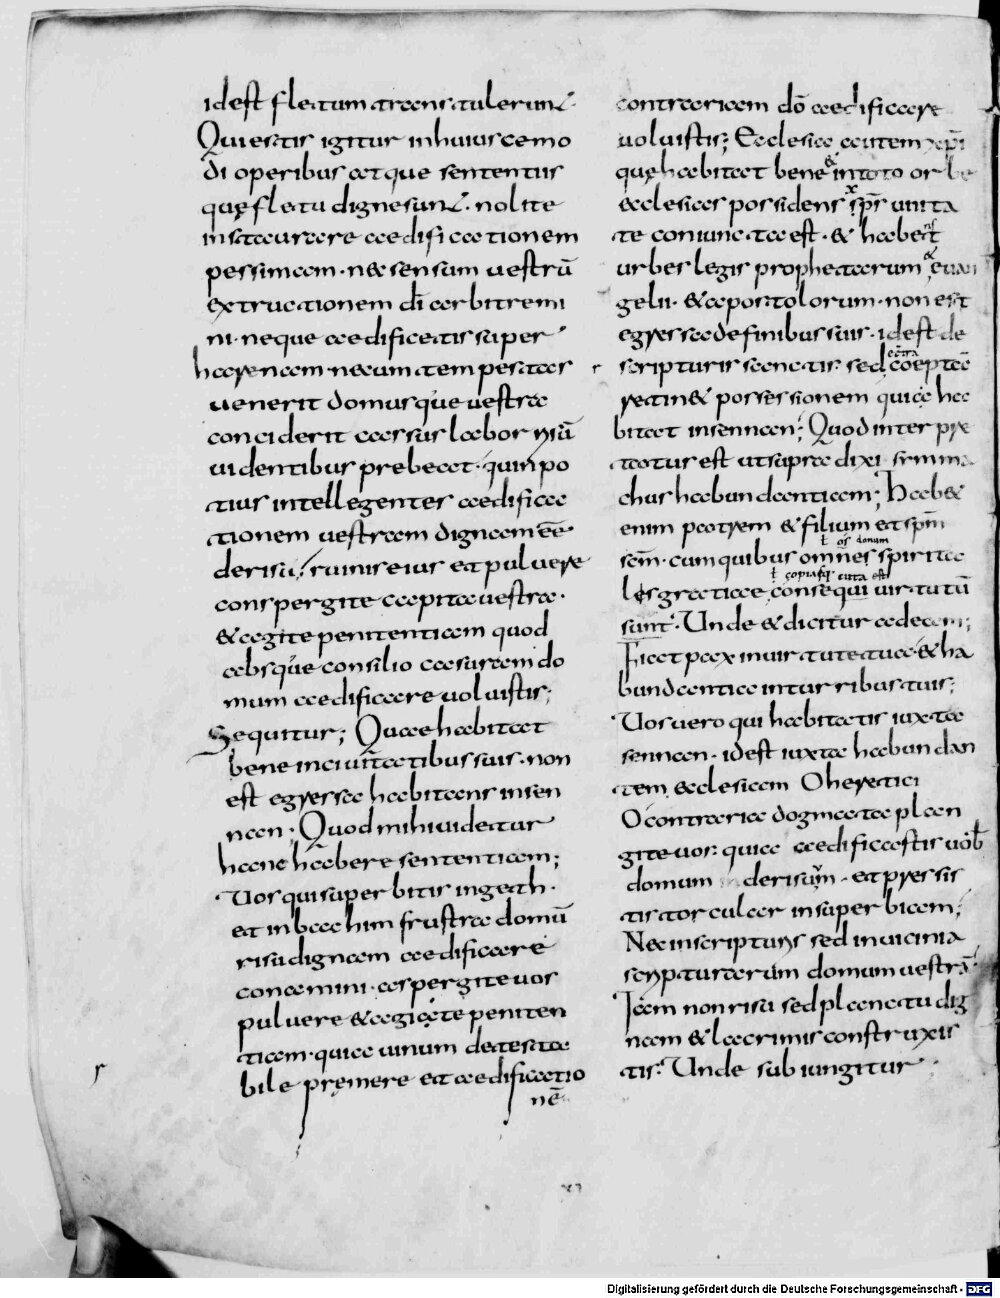 idest fletum transtulerunt.
Qui estis igitur in huiuscemo
di operibus atque sententiis
quę fletu digne sunt. nolite
instaurare aedificationem
pessimam. nec sensum uestrū
extructionem dī arbitremi
ni. neque aedificetis super
harenam ne cum tempestas
uenerit domusque uestra
conciderit casus labor risū
uidentibus prebeat. quin po
tius intellegentes aedifica
tionem uestram dignam eē
derisu, ruinis eius et puluere
conspergite capita uestra.
& agite penitentiam quod
absque consilio casuram do
mum aedificare uoluistis;
Sequitur; Quae habitat
bene in ciuitatibus suis. non
est egressa habitans in sen
nan; Quod mihi uidetur
hanc habere sententiam;
Vos qui superbitis in geth.
et in bachim frustra domū
risu dignam aedificare
conamini. aspergite uos
puluere & agite peniten
tiam. quia uinum detesta
bile premere et aedificatio
nē
contrariam dō aedificare
uoluistis; Ecclesia autem xpī
quę habitat bene & in toto orbe
ecclesias possidens sps unita
te coniuncta est. & habet
urbes legis prophetarum & euan
gelii. & apostolorum. non est
egressa de finibus suis. idest de
scripturis sanctis. sed coepta
retin& possessionem quia ha
bitat in sennan; Quod interpre
tatur est ut supra dixi. semma
chus habundantiam; Hab&
enim patrem & filium et spm
scm. cum quibus omnes spirita
les gratiae consequi uirtutū
sunt. Unde & dicitur ad eam;
Fiat pax in uirtute tua & ha
bundantia in turribus tuis;
Vos uero qui habitatis iuxta
sennan. idest iuxta habundan
tem ecclesiam O heretici
O contraria dogmata plan
gite uos. quia aedificastis uob
domum derisum. et pressis
tis torcular in superbiam;
Nec in scripturis sed in uicinia
scripturarum domum uestrā.
Iam non risu sed planctu dig
nam & lacrimis construxis
tis. Unde subiungitur